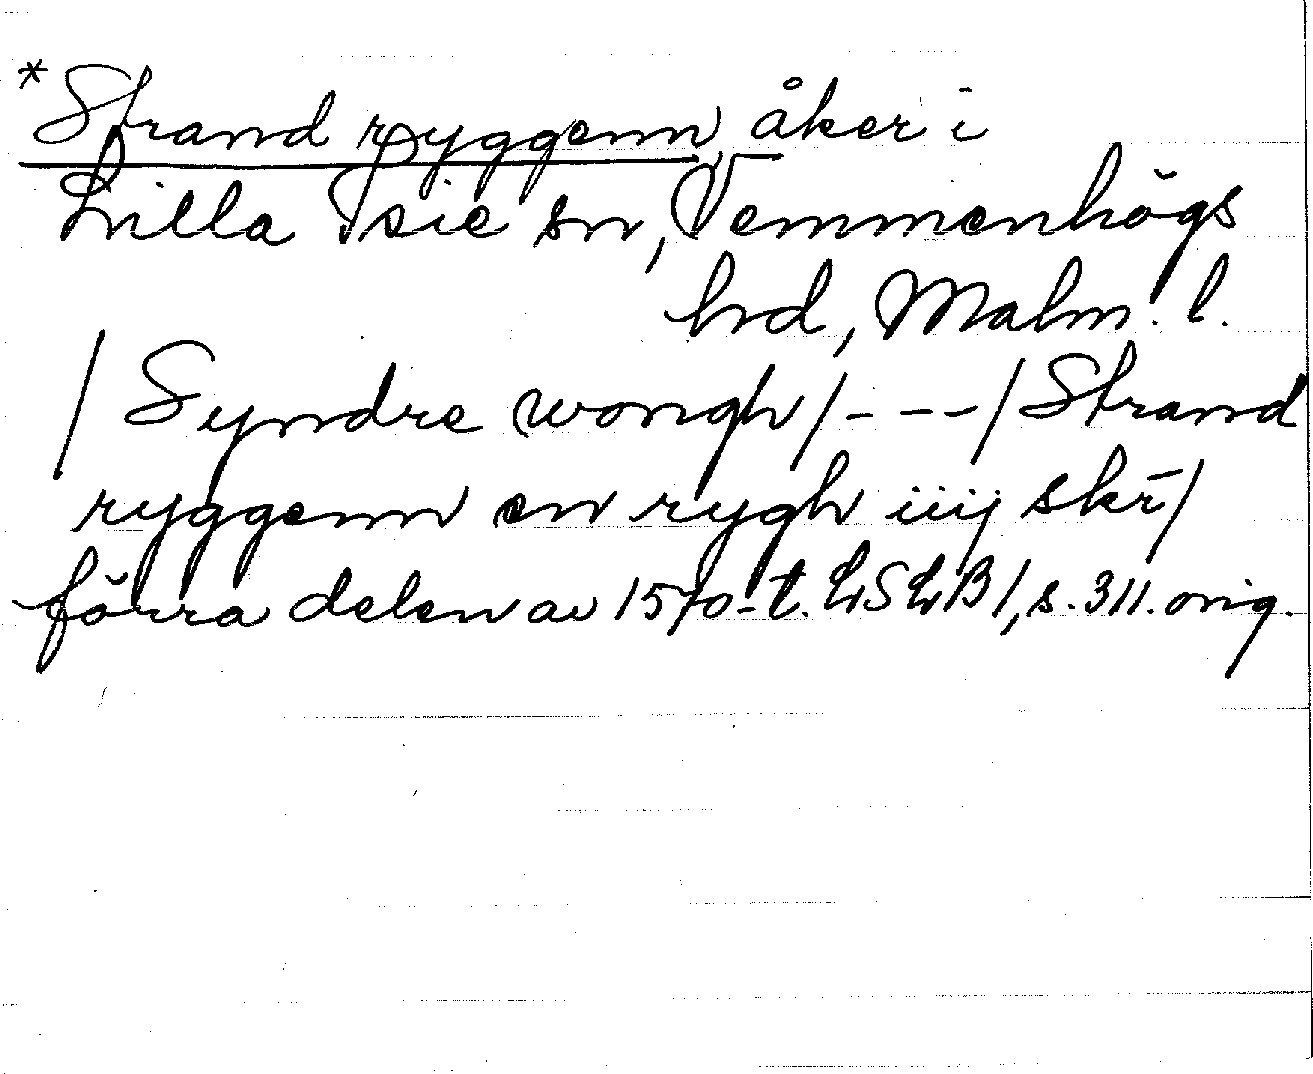 *Strand ryggenn, åker i
Lilla Isie sn, Vemmenhögs
hd, Malm. l.
/ Syndre wongh / - - - / Strand
ryggenn en rygh iiij skr̄ /
förra delen av 1570-t. LSLB1, s. 311. orig.